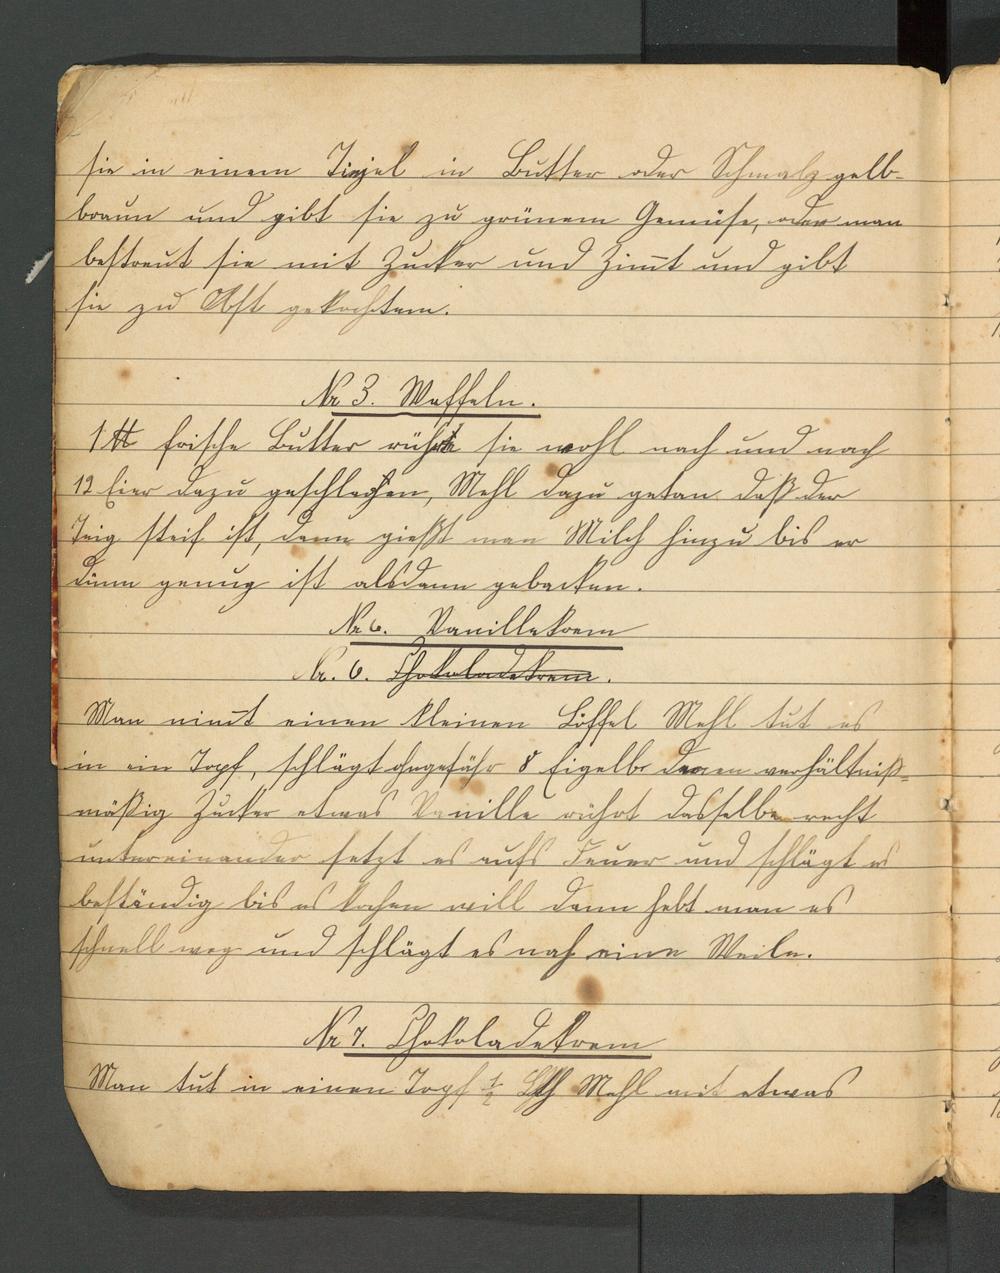 sie in einem Tiegel in Butter oder Schmalz gelb-
braun und gibt sie zu grünem Gemüse, oder man
bestreut sie mit Zucker und Zimt und gibt
sie zu Obst gekochtem.
Nr 3. Waffeln.
1 ℔ frische Butter rührt sie wohl nach und nach
12 Eier dazu geschlagen, Mehl dazu getan daß der
Teig steif ist, dann gießt man Milch hinzu bis er
dünn genug ist alsdann gebacken.
Nr 6. Vanillekrem
Nr. 6. Chokoladekrem.
Man nimt einen kleinen Löffel Mehl tut es
in ein Topf, schlägt ohngefähr 8 Eigelb daran verhältniß-
mäßig Zucker etwas Vanille rührt dasselbe recht
untereinander setzt es aufs Feuer und schlägt es
beständig bis es kochen will dann hebt man es
schnell weg und schlägt es noch eine Weile.
Nr 7. Chokoladekrem
Man tut in einen Topf ½ Mehl mit etwas